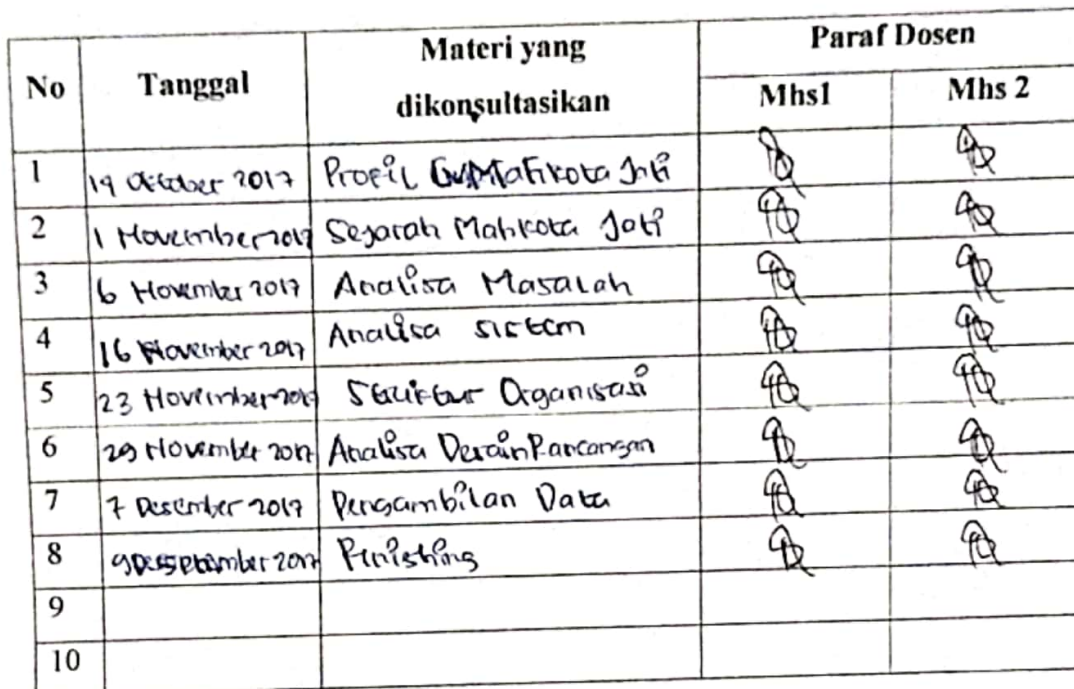 No Tanggal Materi yang dikonsultasikan Paraf Dosen
Mhs1 Mhs 2
1 19 Oktober 2017 Propil CV Mahkota Jati
2 1 November 2017 Sejarah Mahkota Jati
3 6 November 2017 Analisa Masalah
4 16 November 2017 Analisa sistem
5 23 November 2017 Struktur Organisasi
6 29 November 2017 Analisa Desain Rancangan
7 7 Desember 2017 Pengambilan Data
8 2017 Finishing
9
10